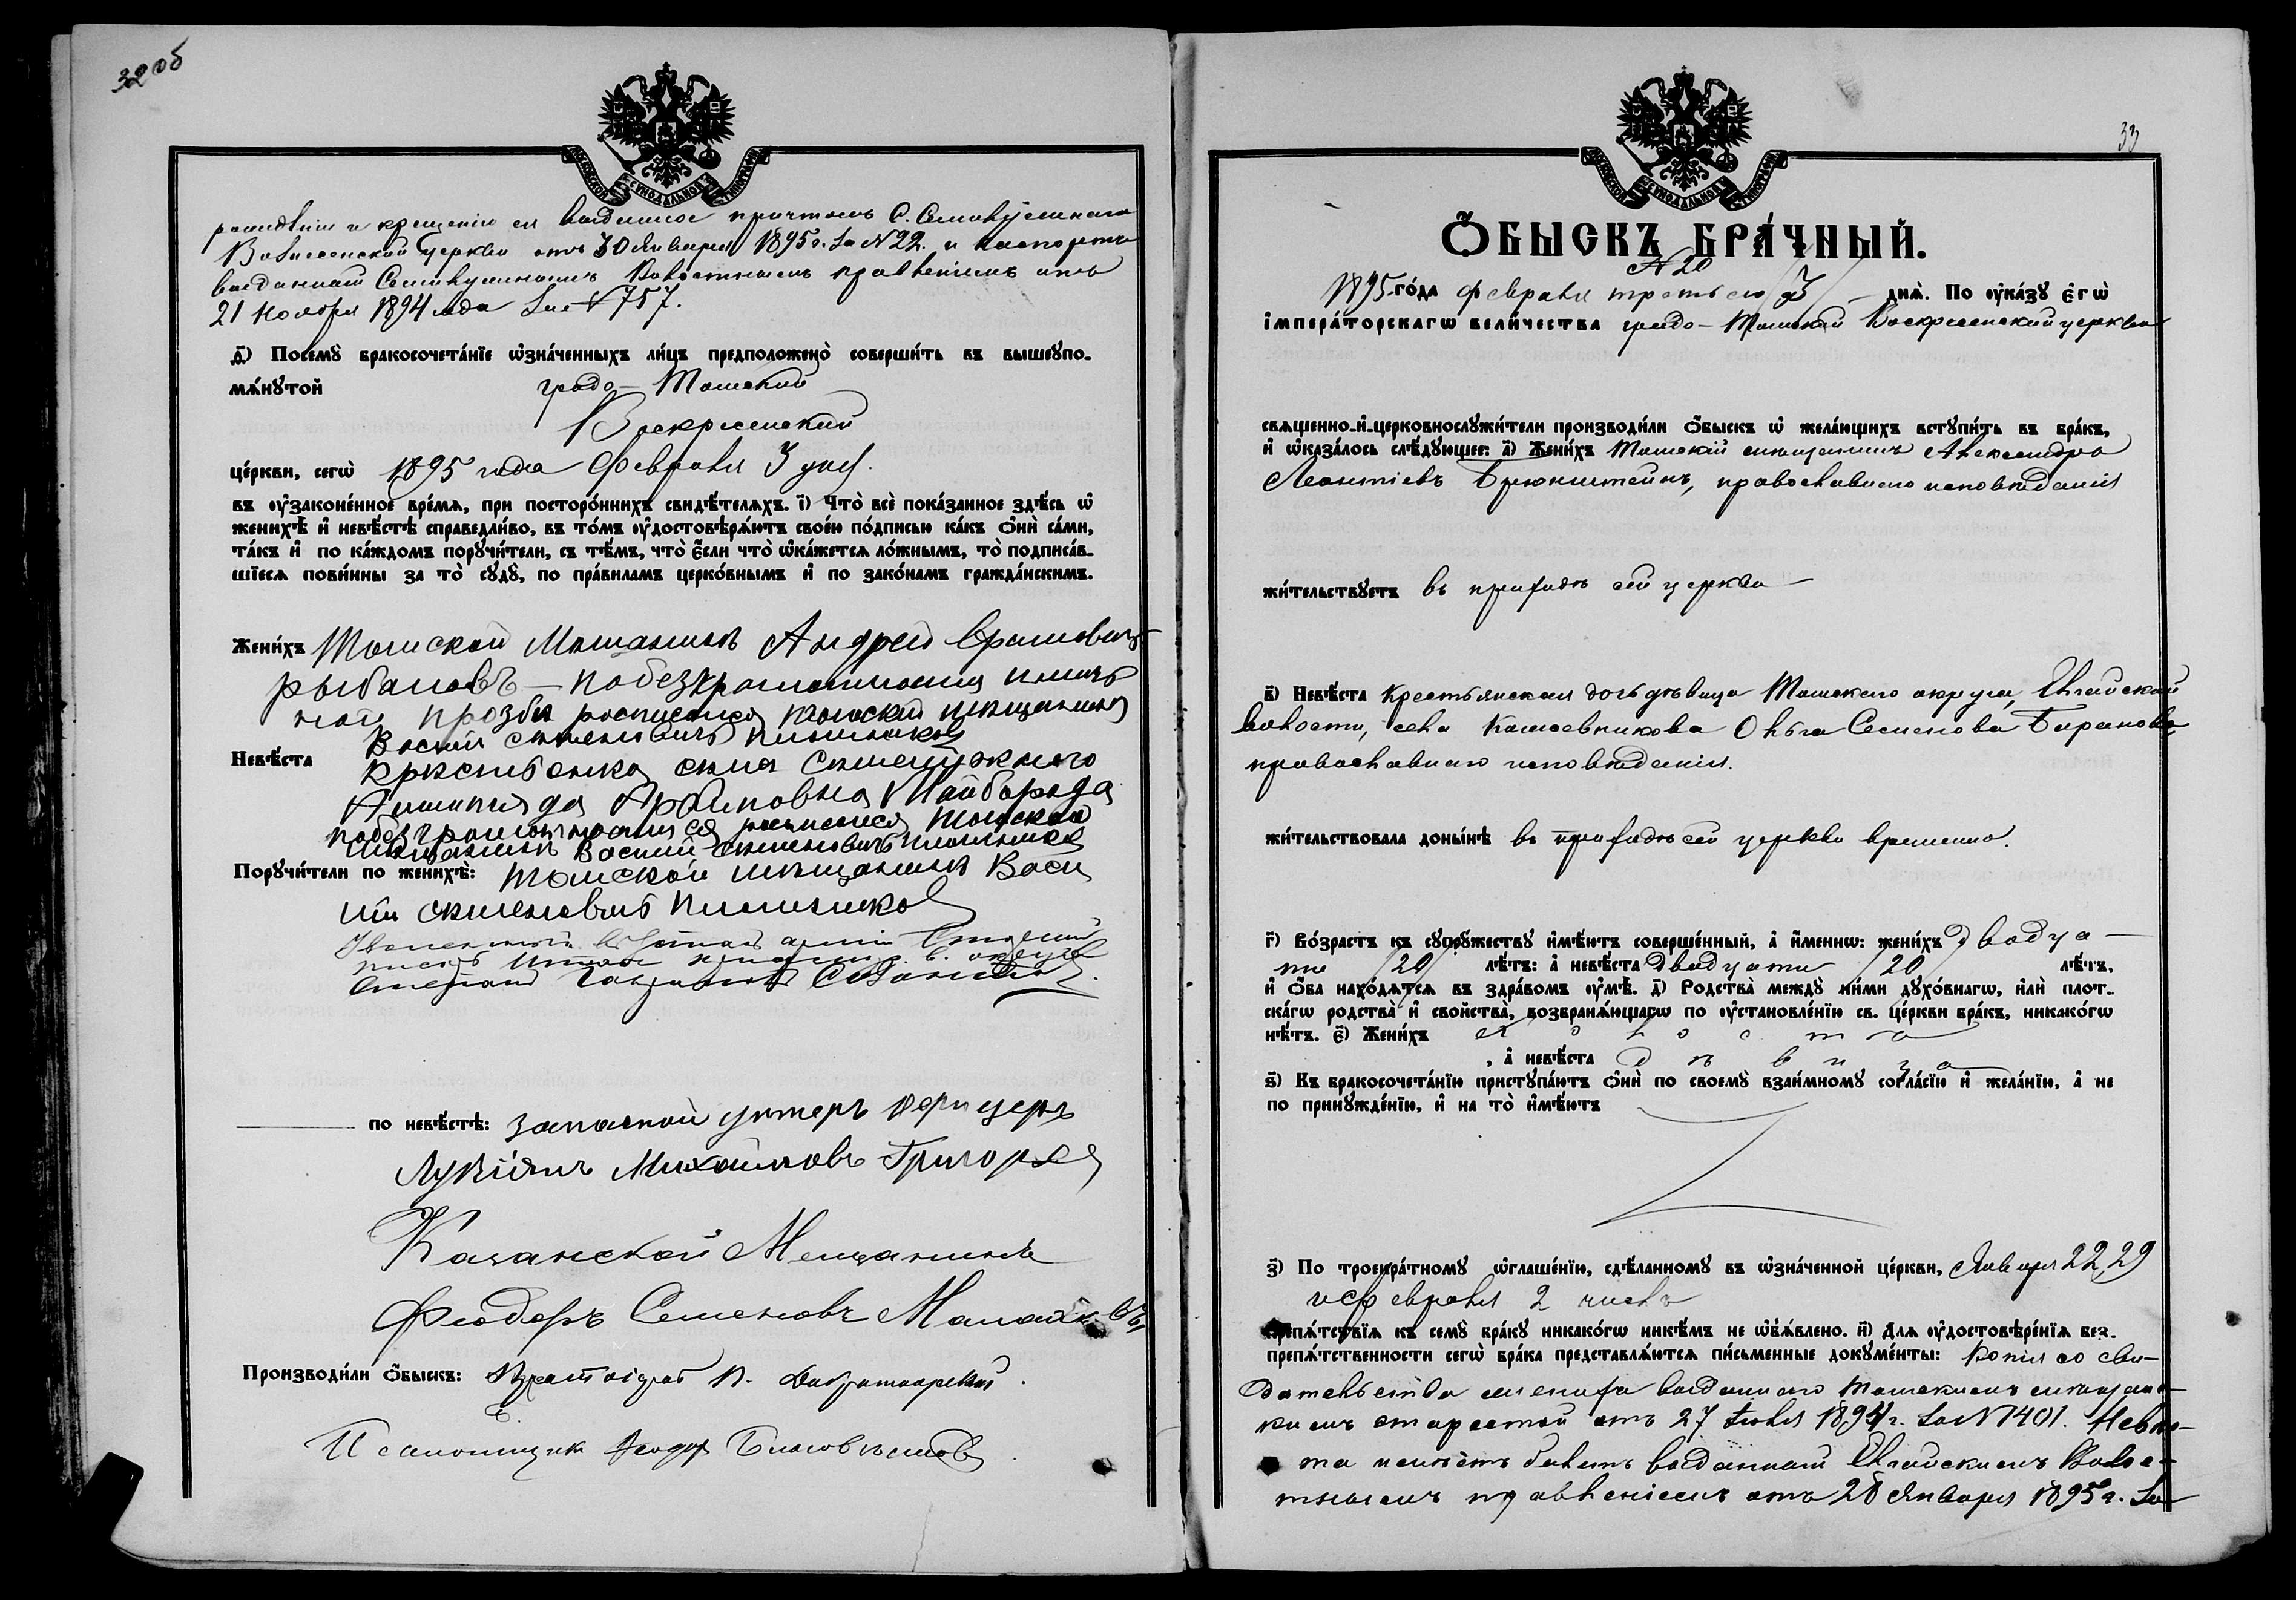 32 об
рождении и крещении ея выданное причтомъ С. Семилужнаго
Вознесенской церкви отъ 30 Января 1895 г. за № 22. и паспортъ
выданный Семилужнымъ Волостнымъ правленіемъ отъ
21 Ноября 1894 года за № 757.
д҃і) Посемꙋ̀ бракосочета́нїе ѡ҆зна́ченныхъ ли́цъ предположено̀ соверши́ть въ вышеꙋпо-
мѧ́нꙋтой градо-Томской
Воскресенской
це́ркви, сегѡ̀ 1895 года Февраля 3 дня.
въ ᲂу҆законе́нное вре́мѧ, при посторо́ннихъ свидѣ́телѧхъ. і҃) Что̀ всѐ пока́занное здѣ́сь ѡ҆
женихѣ̀ и҆ невѣ́стѣ справедли́во, въ то́мъ ᲂу҆достовѣрѧ́ютъ свое́ю по́дписью ка́къ ѻ҆нѝ са́ми,
та́къ и҆ по ка́ждомъ порꙋчи́тели, съ тѣ́мъ, что̀ є҆́сли что̀ ѡ҆ка́жетсѧ ло́жнымъ, то̀ подписа́в-
шїесѧ пови́нны за то̀ сꙋдꙋ̀, по пра́виламъ церко́внымъ и҆ по зако́намъ гражда́нскимъ.
Жени́хъ Томской Мещанинъ Андрей
рыбаловъ — по безграмотности
прозбе росписался томской мещанинъ
Восилий семеновичъ
Невѣ́ста крестьенка села Семилужного
Майборода
по безграмотности ея росписался томской
мещанинъ Восилий семеновичъ
Порꙋчи́тели по женихѣ̀: томской мещанинъ Васи
лий семеновичъ
по невѣ́стѣ: запасной унтеръ офицеръ
Лукіянъ Михайловъ Григорьев
Казанской Мещанинъ
Феодоръ Семеновъ
Производи́ли ѻ҆́быскъ: Протоіерей
Псаломщик Феодор Благовещенов
33
МОСКОВСКОЙ СѴНОДАЛЬНОЙ ТИПОГРАФІИ
Ѻ҆́БЫСКЪ БРА́ЧНЫЙ.
№ 20
1895 го́да Февраля третьяго /3/ днѧ̀. По ᲂу҆ка́зꙋ є҆гѡ̀
і҆мпера́торскагѡ вели́чества градо-Томской Воскресенской церкви
свѧщенно-и҆-церковнослꙋжи́тели производи́ли ѻ҆́быскъ ѡ҆ жела́ющихъ встꙋпи́ть въ бра́къ,
и҆ ѡ҆каза́лось слѣ́дꙋющее: а҃) Жени́хъ Томскій мѣщанинъ Александръ
Леонтіевъ Брюнштейнъ, православнаго исповѣданія
жи́тельствꙋетъ въ приходѣ сей церкви
в҃) Невѣ́ста Крестьянская дочь дѣвица Томскаго округа, Елгайской
волости, села Кожевникова Ольга Семенова Баранова,
православнаго исповѣданія.
жи́тельствовала донынѣ̀ въ приходѣ сей церкви временно.
г҃) Во́зрастъ къ сꙋпрꙋ́жествꙋ и҆мѣ́ютъ соверше́нный, а҆ и҆́меннѡ: жени́хъ двадца-
ти /20/ лѣ́тъ: а҆ невѣ́ста двадцати /20/ лѣ́тъ,
и҆ ѻ҆́ба нахо́дѧтсѧ въ здра́вомъ ᲂу҆мѣ̀. д҃) Родства̀ междꙋ̀ ни́ми дꙋхо́внагѡ, и҆лѝ плот-
ска́гѡ родства̀ и҆ свойства̀, возбранѧ́ющагѡ по ᲂу҆становле́нїю св. це́ркви бра́къ, никако́гѡ
нѣ́тъ. є҃) Жени́хъ холостъ
, а҆ невѣ́ста дѣвица
ѕ҃) Къ бракосочета́нїю пристꙋпа́ютъ ѻ҆нѝ по своемꙋ̀ взаи́мномꙋ согла́сїю и҆ жела́нїю, а҆ не
по принꙋжде́нїю, и҆ на то̀ и҆мѣ́ютъ
з҃) По троекра́тномꙋ ѡ҆глаше́нїю, сдѣ́ланномꙋ въ ѡ҆зна́ченной це́ркви, Января 22, 29
и Февраля 2 числъ
препѧ́тствїѧ къ семꙋ̀ бра́кꙋ никако́гѡ никѣ́мъ не ѡ҆б̾ѧ́влено. и҃) Длѧ ᲂу҆достовѣре́нїѧ без-
препѧ́тственности сегѡ̀ бра́ка представлѧ́ютсѧ пи́сьменные докꙋме́нты: Копія со сви-
дѣтельства жениха выданнаго Томскимъ мѣщан-
скимъ старостой отъ 27 Іюля 1894 г. за № 1401. Невѣ-
ста имѣетъ билетъ выданный Елгайскимъ Волос-
тнымъ правленіемъ отъ 28 Января 1895 г. за